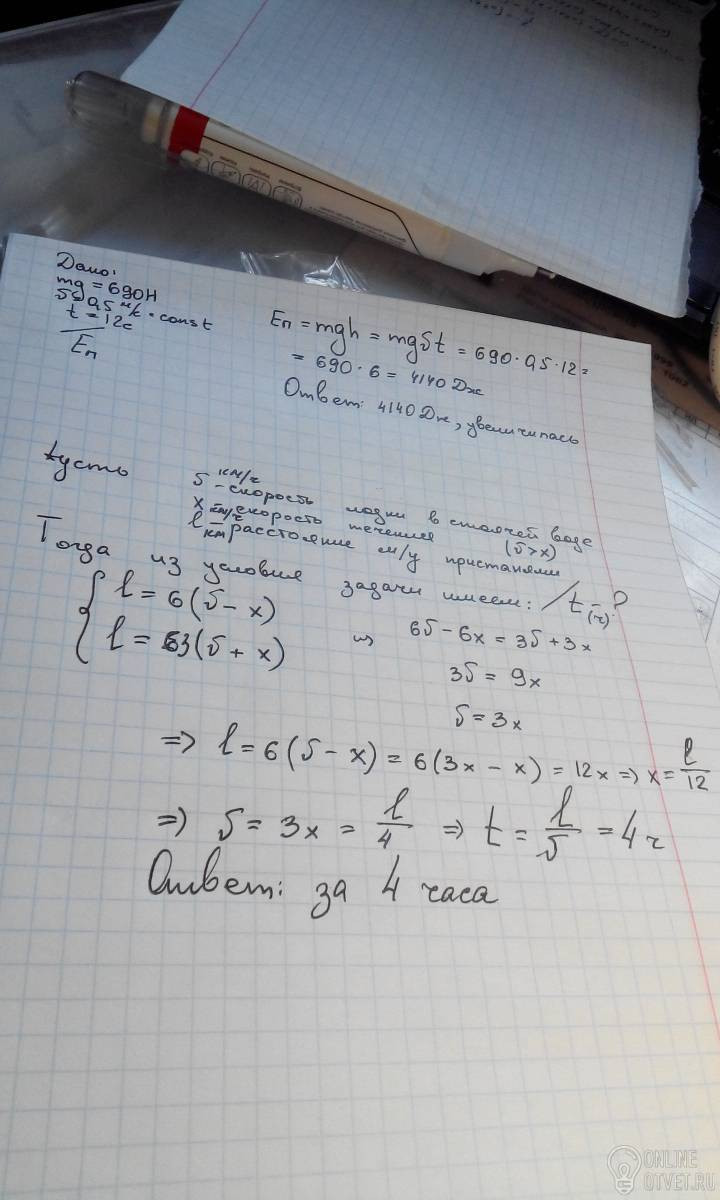 Дано:
mg = 690Н
υ = 0,5 м/с = const
t = 12с
Eп
Eп = mgh = mgυt = 690·0,5·12 =
= 690·6 = 4140 Дж
Ответ: 4140 Дж, увеличилась
Пусть υ км/ч - скорость лодки в стоячей воде
x км/ч - скорость течения (υ>x)
l км - расстояние м/у пристанями
Тогда из условия задачи имеем: t (ч) - ?
{ l = 6(υ - x)
l = 3(υ + x)
=> 6υ - 6x = 3υ + 3x
3υ = 9x
υ = 3x
=> l = 6(υ - x) = 6(3x - x) = 12x => x = l/12
=> υ = 3x = l/4 => t = l/υ = 4ч
Ответ: за 4 часа
ONLINE
OTVET.RU